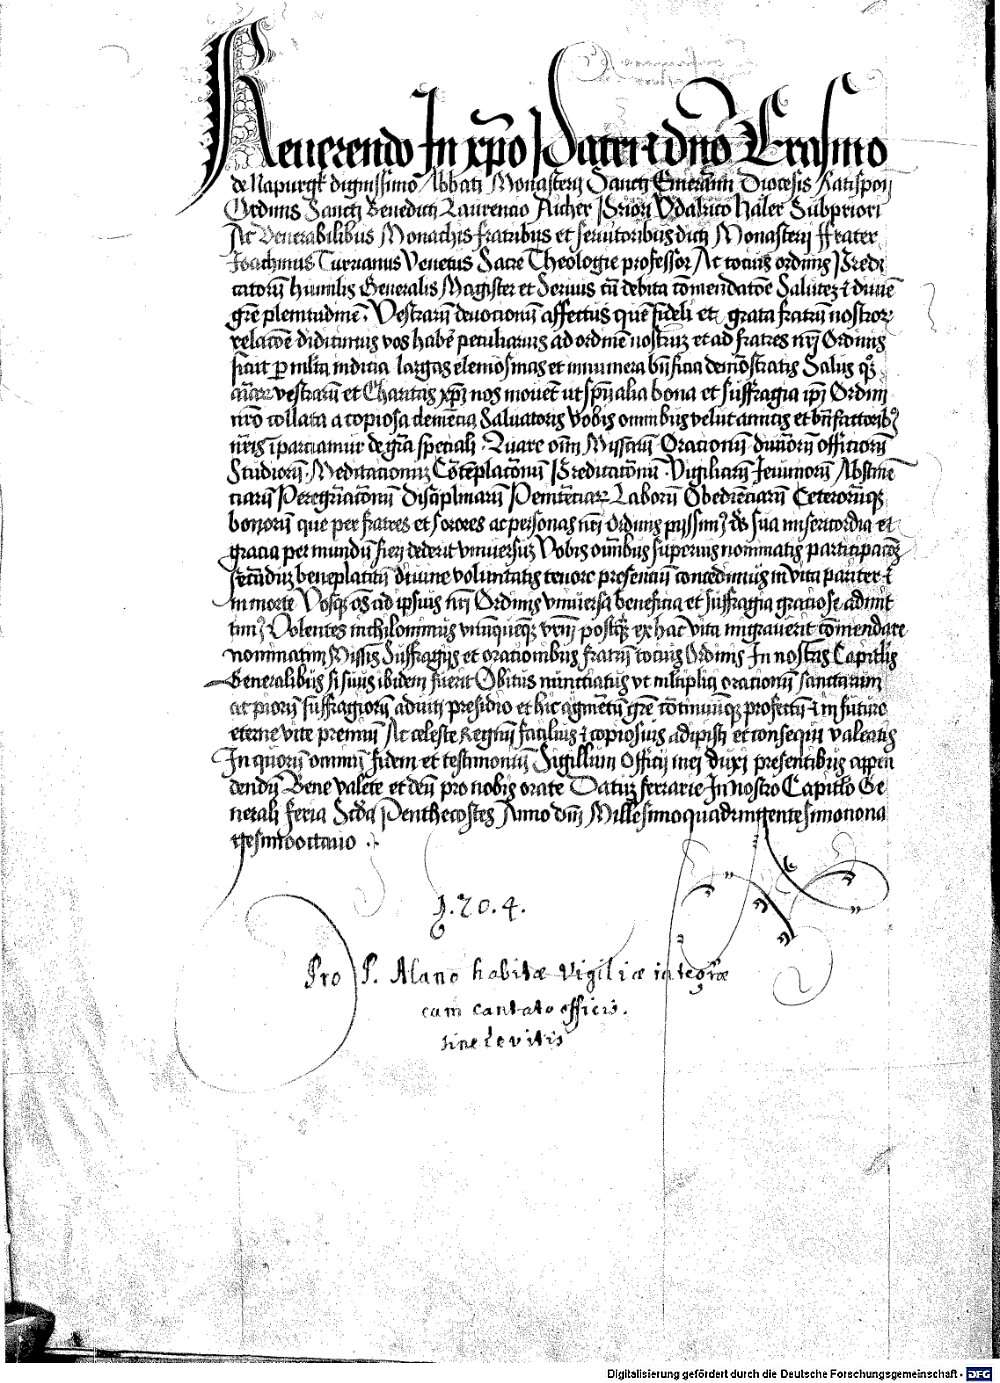 Reuerendo In xpo Patri et dno Erasmo
de Napurgk dignissimo Abbati Monasterij Sancti Emerami Diocesis Ratispon
Ordinis Sancti Benedicti Laurencio Aicher Priori Vdalrico Haler Subpriori
Ac Venerabilibus Monachis fratribus et seruitoribus dicti Monasterij ffrater
Joachinus Turrianus Venetus Sacre Theologie professor Ac totius ordinis Predi
catorum humilis Generalis Magister et Seruus cum debita comendatoe Salutez et diuine
gre plenitudinem. Vestrarum deuotionum affectus quem fideli et grata fratrum nostror
relacoe didicimus vos habere peculiarius ad ordinem nostruz et ad fratres nri Ordinis
sicut p multa indicia largas elemosinas et innumera bnficia demostratis Salus qz
aiarum vestrarum et Charitas xpi nos mouent ut spualia bona et suffragia ipi Ordini
nro collata a copiosa clementia Saluatoris Vobis omnibus velut amicis et bnfactoribz
nris ipartiamur de gra speciali. Quare oim Missarum Orationum diuinorum officiorum
Studiorum. Meditationuz Cotemplationum Predicationum. Vigiliarum Jeiuniorum Abstine
tiarum Peregrinationum Disciplinarum Penitentiarum Laborum Obedienciarum Ceterorumqz
bonorum que per fratres et sorores ac personas nri Ordinis pijssimus ds sua misericordia et
gratia per mundum fieri dederit vniuersuz Vobis omnibus superius nominatis participacoez
secunduz beneplacitum diuine voluntatis tenore presentium concedimus in vita pariter et
in morte Vosqz os ad ipsius nri Ordinis vniuersa beneficia et suffragia gratiose admit
timus Volentes inchilominus vnuqueqz vrm postqz ex hac vita migrauerit comendare
nominatim Missis Suffragijs et orationibus fratrum totius Ordinis In nostris Capitulis
Generalibus si suus ibidem fuerit Obitus nunctiatus vt mltiplici orationum sanctarum
ac piorum suffragiorum adiuti presidio et hic agmetum gre cotinuumqz profectum et in futuro
eterne vite premium Ac celeste Regnum facilius et copiosius adipisci et consequi valeatis
In quorum omnium fidem et testimonium Sigillum Officij mei duxi presentibus appen
dendum Bene valete et deum pro nobis orate Datuz ferrarie In nostro Capitulo Ge
nerali feria Scda Penthecostes Anno dni Millesimoquadringentesimonona
gesimooctauo .
1.70.4.
Pro P. Alano habitæ Vigiliæ integræ
cum cantato officio.
sine Levitis
Digitalisierung gefördert durch die Deutsche Forschungsgemeinschaft - DFG